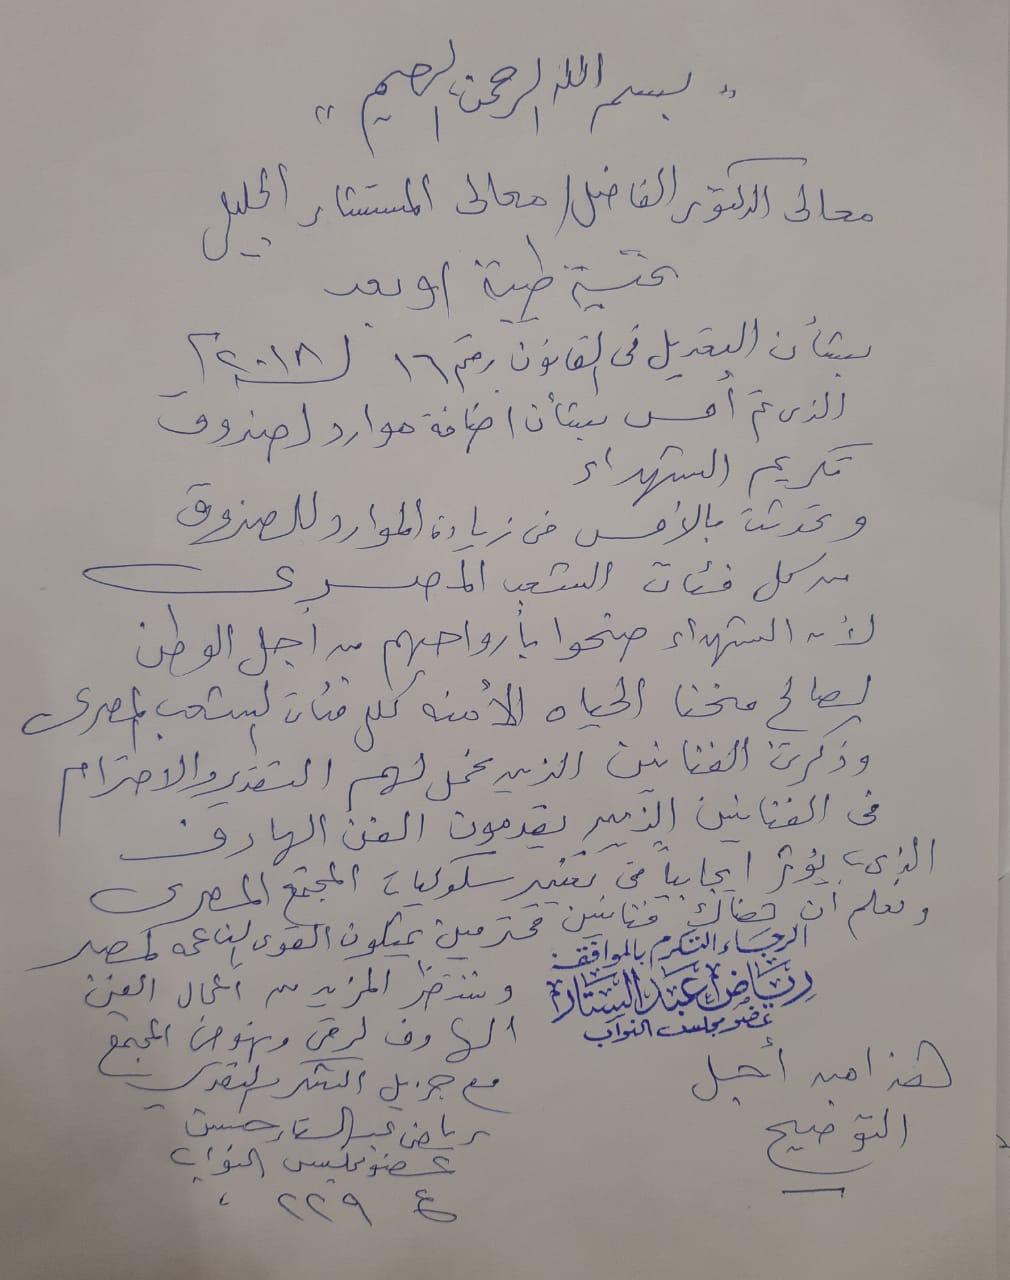 " بسم الله الرحمن الرحيم "
معالى الدكتور الفاضل / معالى المستشار الجليل
تحية طيبة وبعد
بشأن التعديل فى القانون رقم ١٦ لـ ٢٠١٨
الذى تم أمس بشأن اضافة موارد لصندوق
تكريم الشهداء
وتحدثت بالأمس فى زيادة الموارد للصندوق
من كل فئات الشعب المصرى
لأن الشهداء ضحوا بأرواحهم من أجل الوطن
لصالح منحنا الحياه الأمنه لكل فئات الشعب المصرى
وذكرت الفنانين الذين نحمل لهم التقدير والاحترام
فى الفنانين الذين يقدمون الفن الهادف
الذى يؤثر ايجابياً فى تغيير سلوكيات المجتمع المصرى
ونعلم أن هناك فنانين محترمين يمثلون القوى الناعمه لمصر
وننتظر المزيد من أعمال الفن
الهادف لرقى ونهوض المجتمع
مع جزيل الشكر والتقدير
رياض عبد الستار حسن
عضو مجلس النواب
٢٢٩
الرجاء التكرم بالموافقة
رياض عبد الستار
عضو مجلس النواب
هذا من أجل
التوضيح